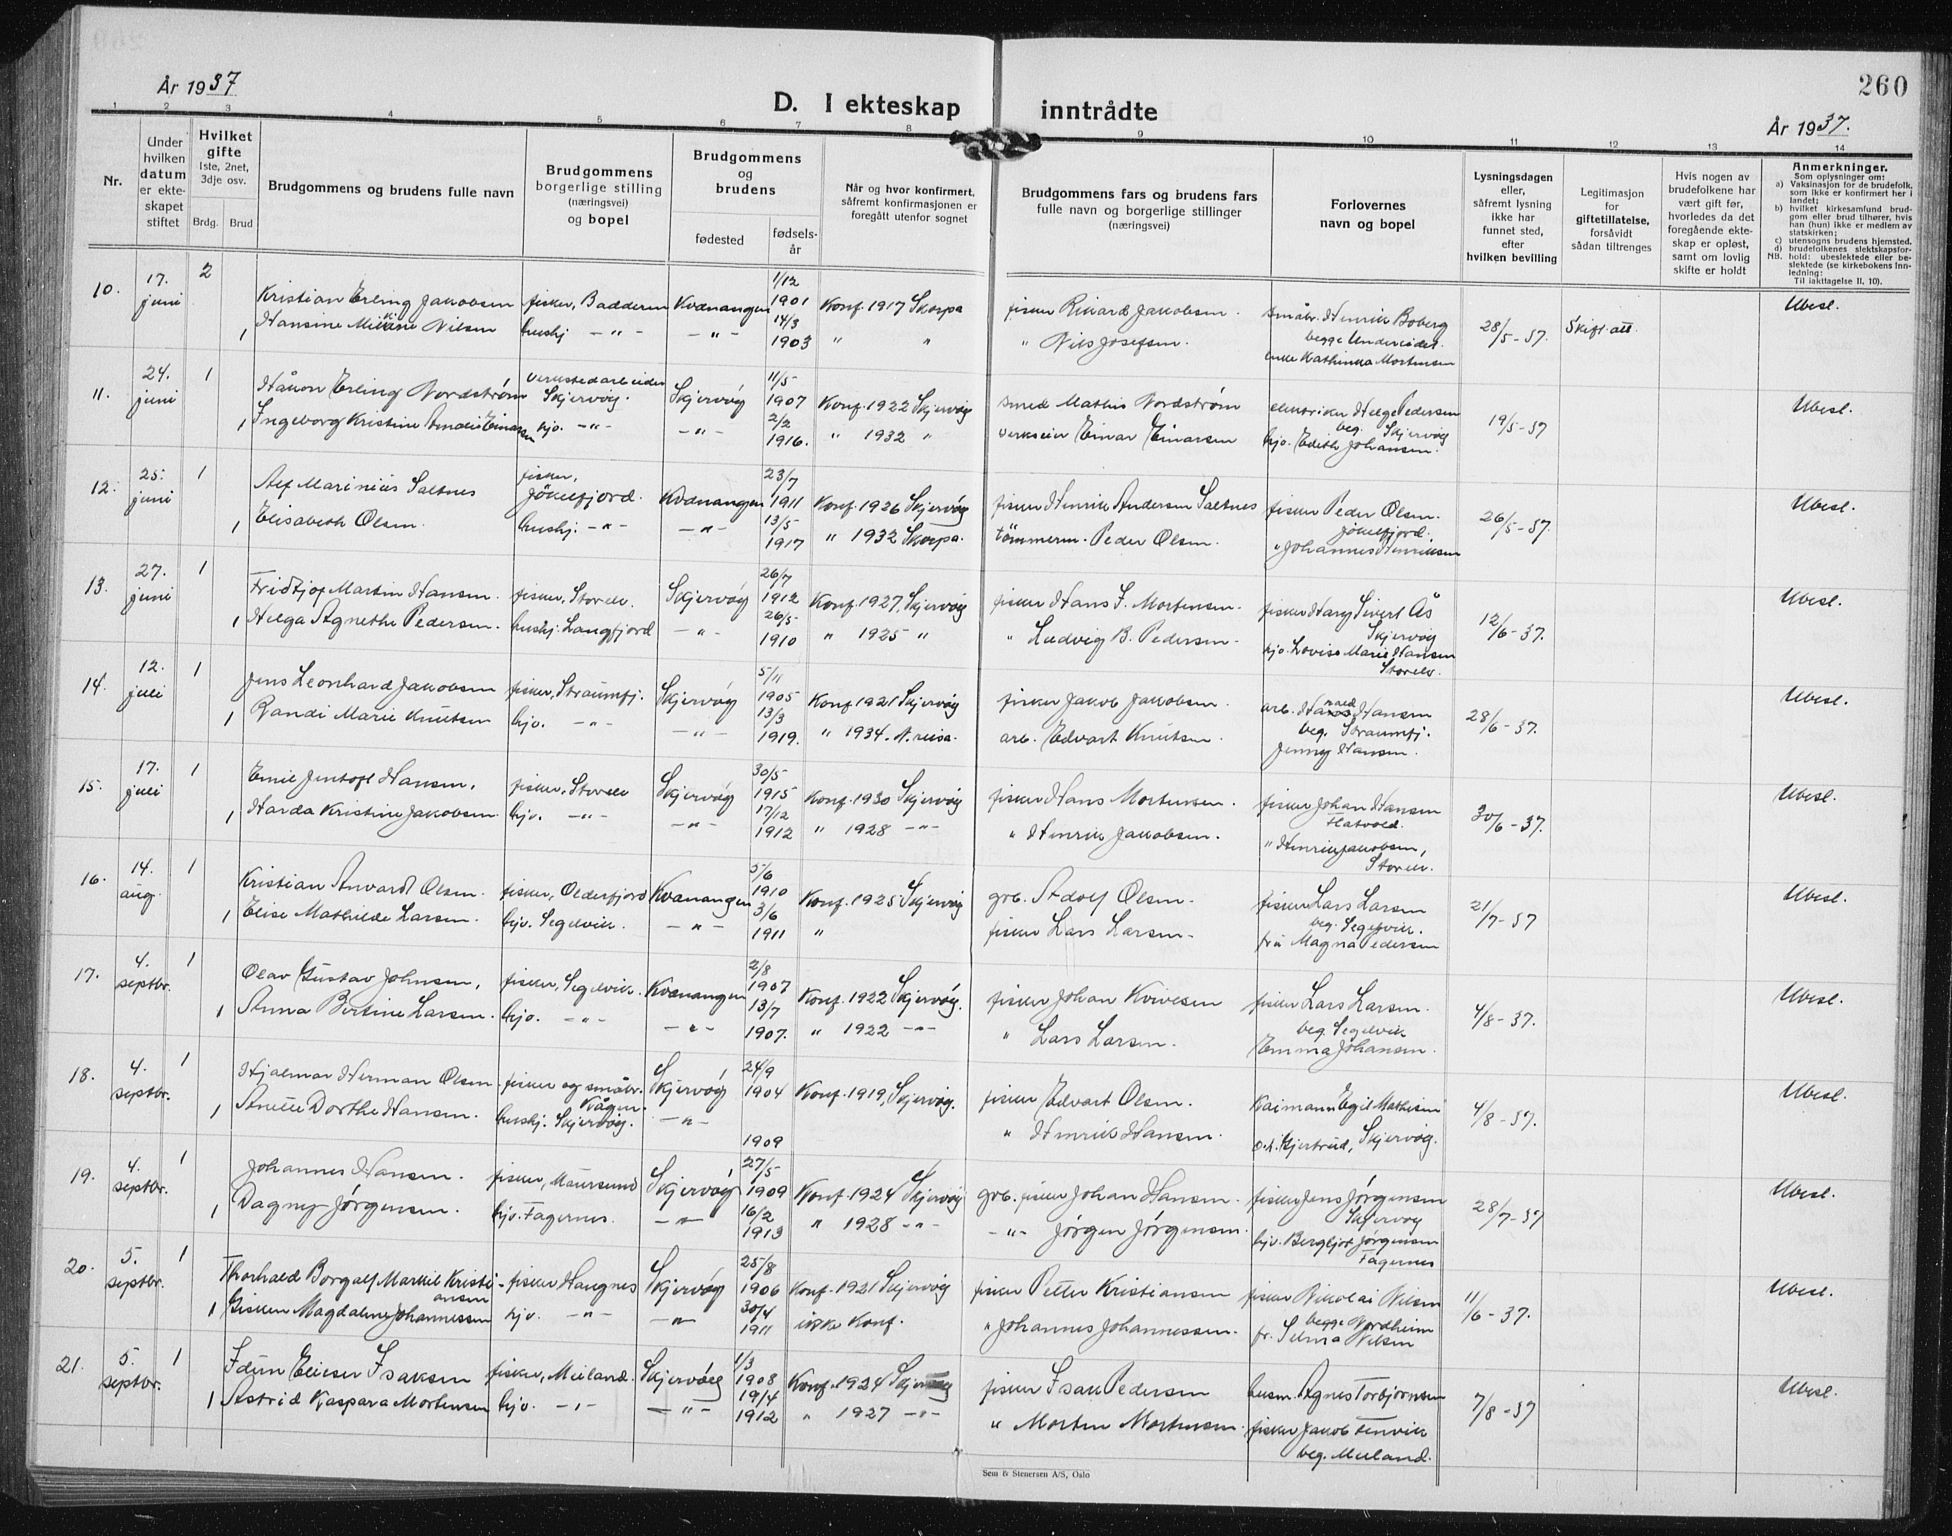 260
År 1937
D. I ekteskap inntrådte
År 1937.
1 2 3 4 5 6 7 8 9 10 11 12 13 14
Nr.
Under hvilken datum er ekteskapet stiftet
Hvilket gifte
1ste, 2net, 3dje osv.
Brdg. Brud
Brudgommens og brudens fulle navn
Brudgommens borgerlige stilling (næringsvei) og bopel
Brudgommens og brudens
fødested
fødselsår
Når og hvor konfirmert, såfremt konfirmasjonen er foregått utenfor sognet
Brudgommens fars og brudens fars fulle navn og borgerlige stillinger (næringsvei)
Forlovernes navn og bopel
Lysningsdagen eller, såfremt lysning ikke har funnet sted, efter hvilken bevilling
Legitimasjon for giftetillatelse, forsåvidt sådan tiltrenges
Hvis nogen av brudefolkene har vært gift før, hvorledes da det foregående ekteskap er opløst, samt om lovlig skifte er holdt
Anmerkninger.
Som oplysninger om:
a) Vaksinasjon for de brudefolk, som ikke er konfirmert her i landet;
b) hvilket kirkesamfund brudgom eller brud tilhører, hvis han (hun) ikke er medlem av statskirken;
c) utensogns brudens hjemsted.
d) brudefolkenes slektskapsforhold: ubeslektede eller beslektede (se kirkebokens Innledning:
NB. Til iakttagelse II, 10).
10. 17. juni 2 Kristian Erling Jakobsen fisker, Badderen Kvænangen 1/12 1901 Konf. 1917 Skorpa fisker Rikard Jakobsen. småbr. Henrik Boberg 28/5-37 Skift.att Ubesl.
1 Hansine Mikkine Nilsen hushj. -"- -"- 14/3 1903 " " " Nils Josefsen. begge Undereidet.
enke Kathinka Mortensen
11. 24. juni 1 Håkon Erling Nordstrøm verkstedarbeider Skjervøy. Skjervøy 11/5 1907 Konf. 1922 Skjervøy smed Mathis Nordstrøm elektriker Helge Pedersen 19/5-37 Ubesl.
1 Ingeborg Kristine Amalie Einarsen hjv. -"- -"- 2/2 1916. " 1932 " verkseier Einar Einarsen beg. Skjervøy
hjv. Edith Johansen.
12. 25. juni 1 Alf Marinius Saltnes fisker, Jøkelfjord. Kvænangen 23/7 1911 Konf. 1926 Skjervøy fisker Henrik Andersen Saltnes fisker Peder Olsen. 26/5-37. Ubesl.
1 Elisabeth Olsen. hushj. -"- -"- 13/5 1917 " 1932 Skorpa. tömmerm. Peder Olsen. Jökelfjord.
" Johannes Henriksen
13. 27. juni 1 Fridtjof Martin Hansen. fisker, Storelv. Skjervøy 26/7 1912 Konf. 1927, Skjervøy fisker Hans J. Mortensen. fisker Hans Sivert Ås 12/6-37. Ubesl.
1 Helga Agnethe Pedersen. hushj. Langfjord -"- 26/5 1910 " 1925 " " Ludvig B. Pedersen. Skjervøy
hjv. Lovise Marie Hansen
Storelv.
14. 12. juli 1 Jens Leonhard Jakobsen fisker, Straumfj. Skjervøy 5/11 1905 Konf. 1921 Skjervøy fisker Jakob Jakobsen. arb. Hansen 28/6-37. Ubesl.
1 Randi Marie Knutsen hjv. -"- -"- 13/3 1919. " 1934. N. reisa. arb. Edvart Knutsen. beg. Straumfj.
Jenny Hansen.
15. 17. juli 1 Emil Jentoft Hansen, fisker, Storelv Skjervøy 30/5 1915 Konf. 1930 Skjervøy fisker Hans Mortensen. fisker Johan Hansen 30/6-37. Ubesl.
1 Harda Kristine Jakobsen. hjv. -"- -"- 17/12 1912 " 1928 -"- " Henrik Jakobsen. Hatvold.
" Henrik Jakobsen,
Storelv.
16. 14. aug. 1 Kristian Anvardt Olsen. fisker, Olderfjord Kvænangen 5/6 1910 Konf. 1925 Skjervøy grb. Adolf Olsen. fisker Lars Larsen 21/7-37 Ubesl.
1 Elise Mathilde Larsen. hjv. Segelvik. -"- 3/6 1911 " fisker Lars Larsen. beg. Segelvik.
frk Magna Pedersen
17. 4. septbr. 1 Olav Gustav Johnsen, fisker, Segelvik. Kvænangen 2/8 1907 Konf. 1922 Skjervøy. fisker Johan Kvivesen fisker Lars Larsen. 4/8-37. Ubesl.
1 Anna Bertine Larsen. hjv. -"- -"- 13/7 1907. " 1922 -"- " Lars Larsen. beg. Segelvik
Emma Johansen.
18. 4. septbr. 1 Hjalmar Herman Olsen. fisker og småbr. Kågen. Skjervøy 24/9 1904 Konf. 1919, Skjervøy. fisker Edvart Olsen. Kaimann Egil Mathisen 4/8-37. Ubesl.
1 Anette Dorthe Hansen. hushj. Skjervøy. -"- 1909 " Henrik Hansen. o.h. Gjertrud, Skjervøy.
19. 4. septbr. 1 Johannes Hansen. fisker, Maursund Skjervøy 27/5 1909 Konf. 1924 Skjervøy grb. fisker Johan Hansen. fisker Jens Jørgensen 28/7-37 Ubesl.
1 Dagny Jørgensen. hjv. Fagernes. -"- 16/2 1913 " 1928 -"- -"- Jørgen Jørgensen. Skjervøy
hjv. Bergljot Jørgensen
Fagernes
20. 5. septbr. 1 Thorhald Borgalf Markil Kristiansen fisker Haugnes Skjervøy 25/8 1906 Konf. 1921 Skjervøy fisker Petter Kristiansen fisker Nikolai Nilsen 11/6-37. Ubesl.
1 Gislaug Magdalene Johannessen hjv. -"- -"- 30/4 1911 ikke Konf. " Johannes Johannessen. begge Nordheim
fr. Selma Nilsen
21. 5. septbr. 1 Idun Elieser Isaksen fisker, Meiland. Skjervøy 1/3 1908 Konf. 1924 Skjervøy fisker Isak Pedersen husm. Agnes Torbjørnsen 7/8-37 Ubesl.
1 Astrid Kaspara Mortensen hjv. -"- -"- 19/4 1912 " 1927 -"- " Morten Mortensen. fisker Jakob Tenvik
beg. Meiland.
Sem & Stenersen A/S, Oslo